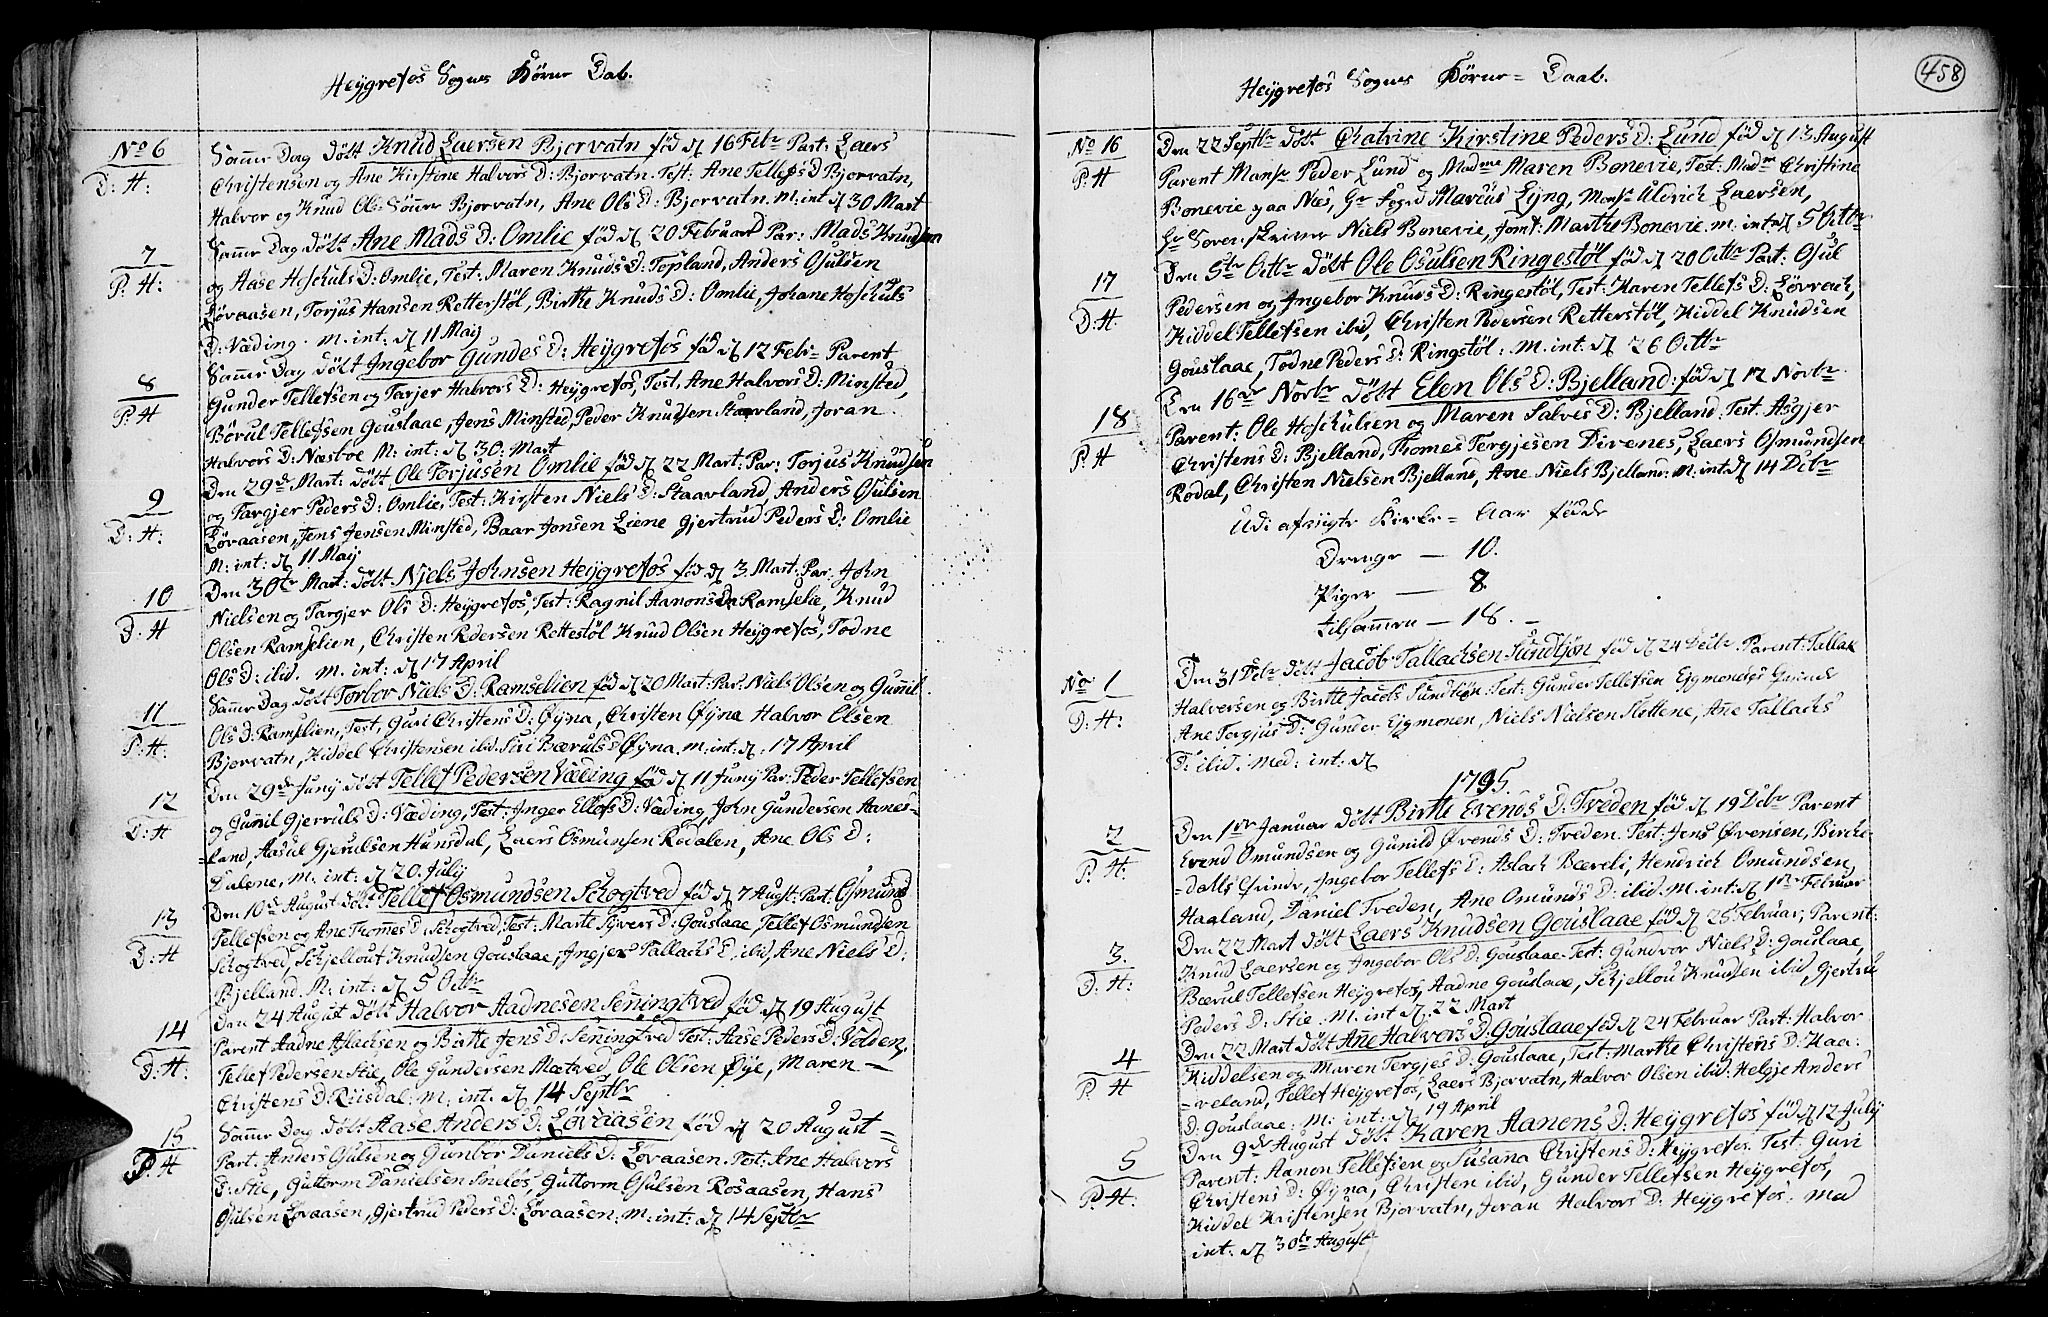 Heÿgrefos Sognes Börne Dab.
No 6
D: H:
Samme Dag döbt Knud Laersen Bjorvatn föd d 16 Febr Part: Laers
Christensen og Ane Kirstine Halvors D: Bjorvatn. Test: Ane Tellefs D Bjorvatn,
Halvor og Knud Ols: Sönner Bjorvatn, Ane Ols D: Bjorvatn. M. int d 30 Mart
7
P: H:
Samme Dag döbt Ane Mads D: Omlie föd d 20 Februar Par: Mads Knudsen
og Aase Hoschuls D: Omlie, Test: Maren Knuds D: Topland, Anders Osulsen
Lövaasen, Torjus Hansen Retterstöl, Birthe Knuds D: Omlie, Johane Hoschuls
D: Væding. M. int: d 11 Maij
8
P: H
Samme Dag döbt Ingebor Gundes D: Heÿgrefos föd d 12 Febr Parent
Gunder Tellefsen og Tarjer Halvors D: Heÿgrefos, Test, Ane Halvors D: Minsted,
Börul Tellefsen Gouslaae, Jens Minsted, Peder Knudsen Staavland, Joran
Halvors D: Næstoe M: int: d 30: Mart
9
D: H:
Den 29de Mart: döbt Ole Torjusen Omlie föd d 22 Mart: Par: Torjus Knudsen
og Targjer Peders D: Omlie, Test: Kirsten Niels D: Staavland, Anders Osulsen
Lövaasen, Jens Jensen Minsted, Baar Jonsen Liene Gjertrud Peders D: Omlie
M: int: d 11 Maij
10
D: H
Den 30te Mart: döbt Njels Johnsen Heÿgrefos föd d 3. Mart: Par: John
Nielsen og Targjer Ols D: Heÿgrefos, Test: Ragnil Aanons D: Ramselie, Knud
Olsen Ramselien, Christen Pedersen Rettestöl Knud Olsen Heÿgrefos, Todne
Ols D: ibid. M. int: d 17 April
11
P: H.
Samme Dag döbt Torbor Niels D: Ramselien föd d 20 Mart: Par: Niels Olsen og Gunnil
Ols D: Ramselien, Test, Guri Christens D: Øÿna, Christen Øÿna Halvor Olsen
Bjorvatn, Kiddel Christensen ibid. Siri Bæruls D Øÿna. M. int: d. 17 April
12
D: H
Den 29de Junÿ döbt Tellef Pedersen Væding föd d 11 Junÿ Par: Peder Tellefsen
og Gunnil Gjerruls D: Væding, Test: Inger Ellefs D: Væding, John Gundersen Aanes-
-land, Aasul Gjerulsen Hunsdal, Laers Osmunsen Rödalen, Ane Ols D:
Dalene, M. int: d 20. Julij
13
D: H
Den 10de August döbt Tellef Osmundsen Schogtved föd d 7 Augst: Part: Osmund
Tellefsen og Ane Thomes D: Schogtved, Test: Marte Syvers D: Gouslaae, Tellef Osmundsen
Schogtved, Schjellout Knudsen Gouslaae, Ingjer Tallachs D. ibid, Ane Niels D:
Bjelland. M: int: d 5 Octbr
14
D: H:
Den 24 August döbt Halvor Aadnesen Senningtved föd d 19 August
Parent Aadne Aslachsen og Birthe Jens D: Senningtved Test: Aase Peders D: Volden,
Tellef Pedersen Stie, Ole Gundersen Mætved, Ole Olsen Øÿe, Maren —
Christens D: Riisdal: M: int. d 14 Septbr
15
P: H
Samme Dag döbt Aase Anders D: Lövaasen föd d 20 August=
Part: Anders Osulsen og Gunbor Daniels D: Lövaasen. Test: Ane Halvors
D: Stie, Guttorm Danielsen Snelös, Guttorm Osulsen Rosaasen, Hans
Osulsen Lövaasen, Gjertrud Peders D: Lövaasen: M: int: d 14 Septbr
458
Heÿgrefos Sognes Börne= Daab.
No 16
P: H
Den 22 Septbr döbt Chatrine Kirstine Peders D: Lund föd d 13 August
Parent Mansr Peder Lund og Madme Maren Bonevie, Test: Madm Christine
Bonevie paa Næs, Hr Foged Marcus Lÿng, Monsr Uldrich Laersen,
Hr Soren-skriver Niels Bonevie, Jomf: Marthe Bonevie. M. int: d 5 Octbr
17
D: H.
Den 5te Octbr döbt Ole Osulsen Ringestöl föd d 20 Octbr Part: Osul
Pedersen og Ingebor Knuds D: Ringestöl, Test: Karen Tellefs D: Lövrach,
Kiddel Tellefsen ibid, Christen Pedersen Retterstöl, Kiddel Knudsen
Gouslaae, Todne Peders D: Ringstöl: M: int: d 26 Octbr
18
P: H
Den 16de Novbr döbt Elen Ols D: Bjelland: föd d 12 Novbr
Parent: Ole Hoschulsen og Maren Salves D: Bjelland. Test: Asgjer
Christens D: Bjelland, Thomes Tergjesen Divenes, Laers Osmundsen
Rödal, Christen Nielsen Bjelland, Ane Niels Bjelland: M: int d 14 Decbr
Udi afvigte Kirke= Aar födde
Drenge — 10.
Piger — 8
tilsammen — 18. —
No 1
D: H:
Den 31 Decbr döbt Jacob Tallachsen Sundtjön föd d 24 Decbr. Parent: Tallak
Halversen og Birthe Jacobs Sundtjön. Test: Gunder Tellefsen Egmondøs Qvinde
Ane Tergjus D: Gunder Egmonen, Niels Nielsen Slettene, Ane Tallachs
D: ibid: Med: int: d
1795.
2
P: H:
Den 1ste Januar döbt Birthe Evends D: Tveden föd d 19 Decbr Parent
Evend Omundsen og Gunild Øvends D: Tveden. Test: Jens Øvensen, Birche-
-dalls Qvinde, Ingebor Tellefs D: Aslach Bæveli, Hendrich Omundsen
Haaland, Daniel Tveden, Ane Omunds D: ibid. M. int: d 1ste Februar
3.
D: H:
Den 22 Mart döbt Laers Knudsen Gouslaae föd d 25 Februar, Parent:
Knud Laersen og Ingebor Ols D: Gouslaae. Test: Gunvor Niels D: Gouslaae,
Bærul Tellefsen Heÿgrefos, Aadne Gouslaae, Schjellou Knudsen ibid, Gjertru
Peders D: Stie. M: int d 22 Mart
4
P: H
Den 22 Mart döbt Ane Halvors D: Gouslaae föd d 24 Februar Part: Halvor
Kiddelsen og Maren Tergjes D: Gouslaae, Test: Marthe Christens D: Kaa:
-veland, Tellef Heÿgrefos, Laers Bjorvatn, Halvor Olsen ibid: Helgje Anders
D: Gouslaae: M: int: d 19 April
5
P: H:
Den 9de August döbt Karen Aanons D: Heÿgrefos föd d 12 Julij
Parent: Aanon Tellefsen og Susana Christens D: Heÿgrefos. Test: Guri
Christens D: Øÿna, Christen ibid, Gunder Tellefsen Heÿgrefos,
Kiddel Kristensen Bjorvatn, Joran Halvors D: Heÿgrefos. Med
int. d 30te August